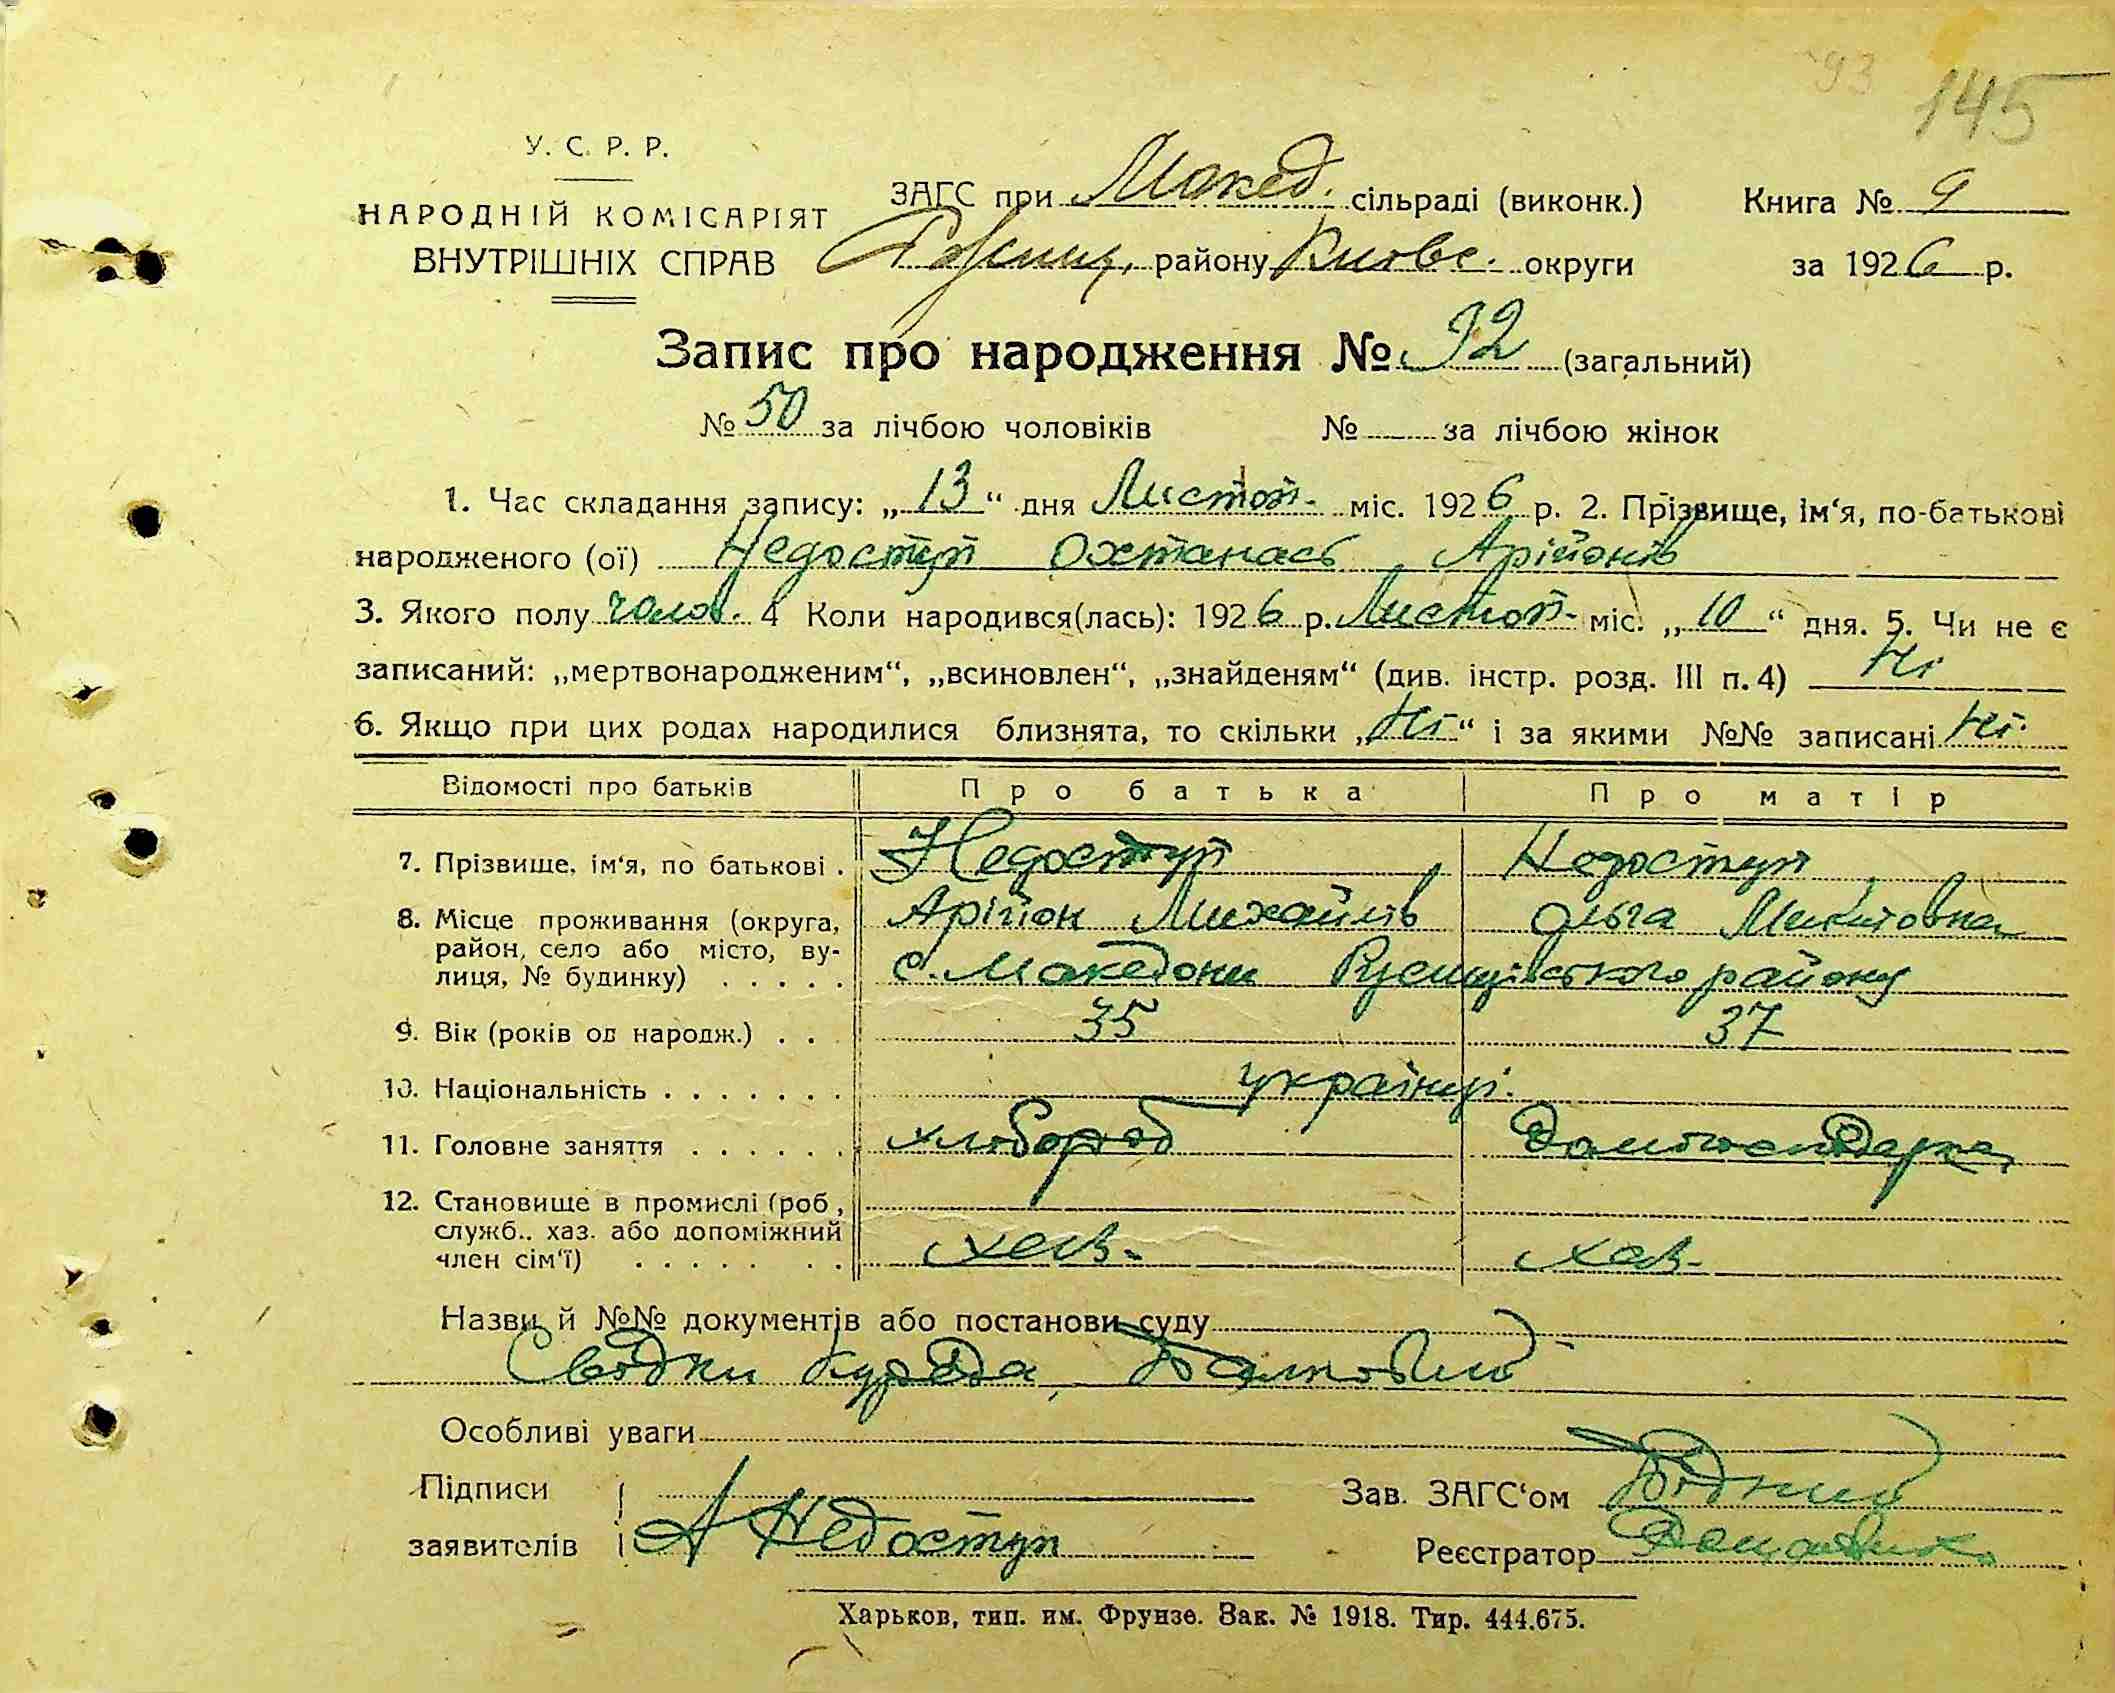 93 145
У. С. Р. Р.
НАРОДНІЙ КОМІСАРІЯТ
ВНУТРІШНІХ СПРАВ
ЗАГС при Макед. сільраді (виконк.)
району Київс. округи
Книга № 9
за 1926 р.
Запис про народження № 92 (загальний)
№ 50 за лічбою чоловіків № за лічбою жінок
1. Час складання запису: „13“ дня Листоп. міс. 1926 р. 2. Прізвище, ім‘я, по-батькові
народженого (ої) Недоступ Охтанась Арійонів
3. Якого полу чолов. 4 Коли народився(лась): 1926 р. Листоп. міс. „10“ дня. 5. Чи не є
записаний: „мертвонародженим“, „всиновлен“, „знайденям“ (див. інстр. розд. III п. 4) Ні
6. Якщо при цих родах народилися близнята, то скільки „Ні“ і за якими №№ записані Ні
Відомості про батьків Про батька Про матір
7. Прізвище, ім‘я, по батькові . Недоступ Недоступ
8. Місце проживання (округа, Арійон Михайлів Ольга Микитовна
район, село або місто, ву-
лиця, № будинку) . . . . . с. Македони Ржищівського району
9. Вік (років од народж.) . . 35 37
10. Національність . . . . . . . українці.
11. Головне заняття . . . . . . хлібороб домогосподарка
12. Становище в промислі (роб.,
служб., хаз. або допоміжний
член сім‘ї) . . . . . . . хаз. хаз.
Назви й №№ документів або постанови суду
Сводки
Особливі уваги
Підписи
заявителів А Недоступ
Зав. ЗАГС‘ом Бідний
Реєстратор
Харьков, тип. им. Фрунзе. Зак. № 1918. Тир. 444.675.